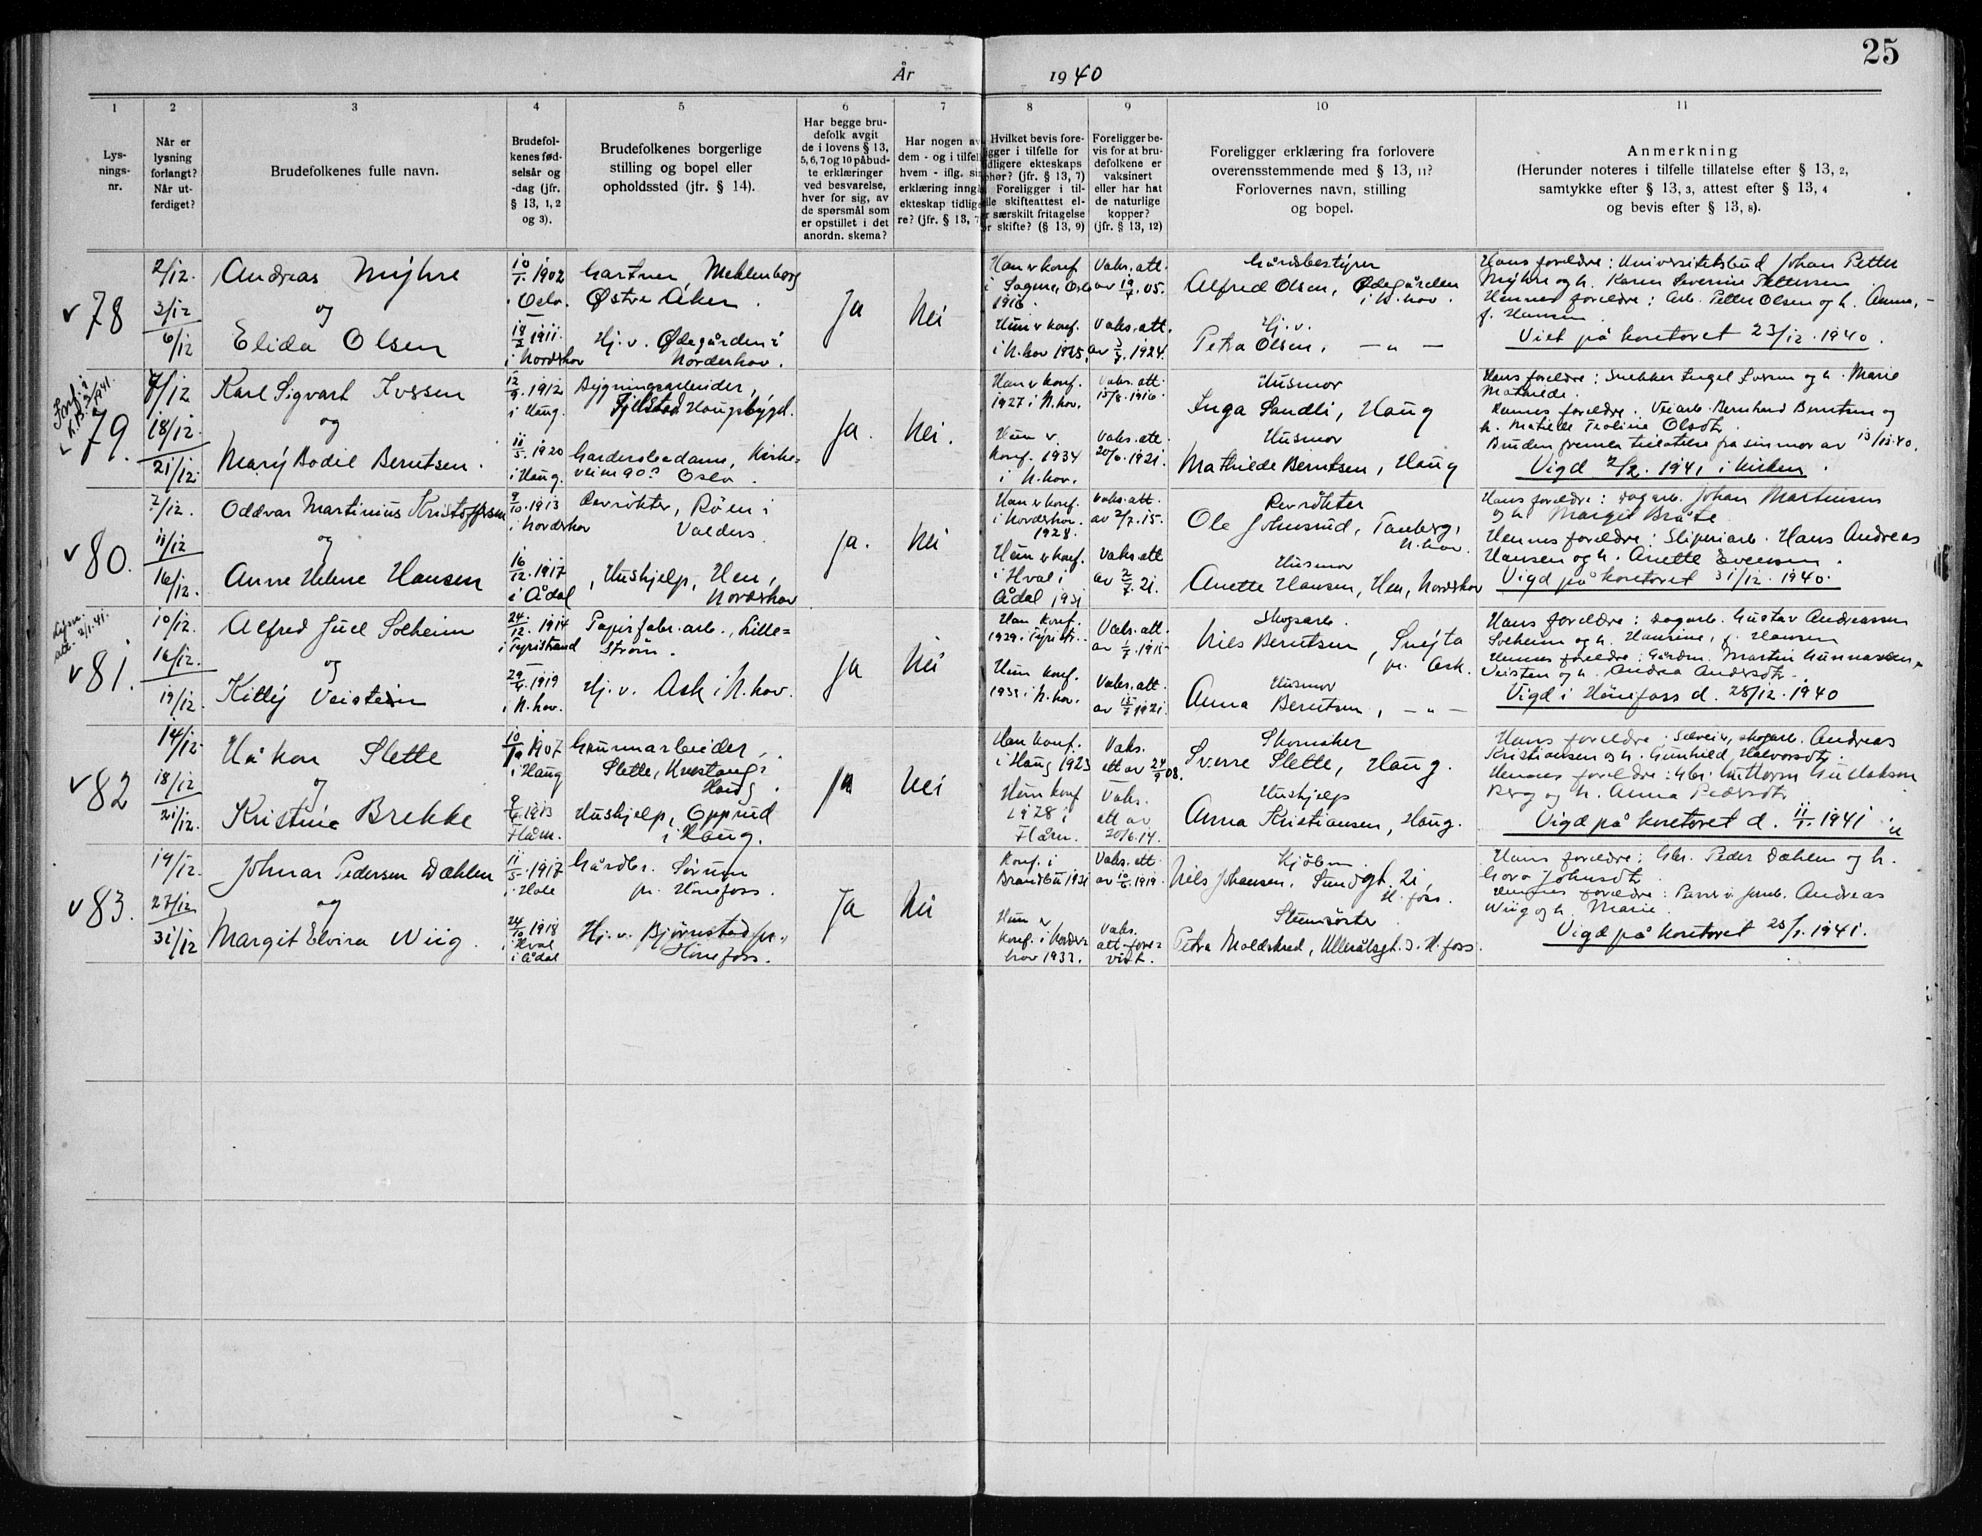 År 1940
25
1 2 3 4 5 6 7 8 9 10 11
Lys-
nings-
nr.
Når er
lysning
forlangt?
Når ut-
ferdiget?
Brudefolkenes fulle navn.
Brudefol-
kenes fød-
selsår og
-dag (jfr.
§ 13, 1, 2
og 3).
Brudefolkenes borgerlige
stilling og bopel eller
opholdssted (jfr. § 14).
Har begge bru-
defolk avgit
de i lovens § 13,
5, 6, 7 og 10 påbud-
te erklæringer
ved besvarelse,
hver for sig, av
de spørsmål som
er opstillet i det
anordn. skema?
Har nogen av
dem - og i tilfel
hvem - iflg. sin
erklæring inngå
ekteskap tidlige
re? (jfr. § 13, 7
Hvilket bevis fore-
ligger i tilfelle for
tidligere ekteskaps
ophør? (jfr. § 13, 7)
Foreligger i til-
elle skifteattest el-
r særskilt fritagelse
or skifte? (§ 13, 9)
Foreligger be-
vis for at bru-
defolkene er
vaksinert
eller har hat
de naturlige
kopper?
(jfr. § 13, 12)
Foreligger erklæring fra forlovere
overensstemmende med § 13, 11?
Forlovernes navn, stilling
og bopel.
Anmerkning
(Herunder noteres i tilfelle tillatelse efter § 13, 2,
samtykke efter § 13, 3, attest efter § 13, 4
og bevis efter § 13, 8).
v 78
2/12.
3/12
6/12
Andreas Myhre
og
Elida Olsen
10/1 1902
i Oslo.
18/2 1911.
i Norderhov
Gartner Meklenborg
Østre Aker.
Hj. v. Ødegården i
Norderhov.
Ja
Nei
Han er konf.
i Sagene, Oslo
1916.
Hun er konf.
i N.hov 1925.
Vaks. att.
av 19/7. 05.
Vaks. att.
av 3/7. 1924.
Gårdsbestyrer
Alfred Olsen, Ødegården
i N.hov.
Hj. v.
Petra Olsen, — " —
Hans foreldre: Universitetsbud Johan Petter
Myhre og h. Karen Severine Pettersen
Hennes foreldre: Arb. Petter Olsen og h. Anna,
f. Hansen
Viet på kontoret 23/12. 1940.
79.
7/12
18/12.
21/12.
Karl Sigvart Iversen
og
Mary Bodil Berntsen.
12/9. 1912
i Haug.
11/5. 1920
i Haug.
Bygningsarbeider,
Fjelstad Haugsbygd.
Garderobedame, Kirke-
veien 90? Oslo.
Ja.
Nei.
Han er konf.
1927 i N.hov.
Hun er
konf. 1934
i N.hov.
Vaks. att.
15/8. 1916.
Vaks. att.
20/6. 1921.
Husmor
Inga Sandli, Haug
Husmor
Mathilde Berntsen, Haug
Hans foreldre: Snekker Engel Iversen og h. Marie
Mathilde.
Hennes foreldre. Veiarb. Bernhard Berntsen og
h. Matilde Teoline Olsdtr.
Bruden fremla tillatelse fra sin mor av 13/12. 40.
Vigd 2/2. 1941 i kirken.
v 80.
7/12.
11/12
16/12.
Oddvar Martinius Kristoffersen
og
Anne Helene Hansen
9/10. 1913
i Norderhov
16/12. 1917
i Ådal
Revrøkter, Røn i
Valdres.
Hushjelp, Hen,
Norderhov
Ja.
Nei
Han er konf.
i Norderhov.
1928.
Hun er konf.
i Hval i
Ådal 1931
Vaks. att.
av 2/7. 15.
Vaks. att
av 2/7. 21.
Revrøkter
Ole Johnsrud, Tanberg,
N.hov.
Husmor
Anette Hansen, Hen, Norderhov
Hans foreldre: Dagarb. Johan Martinsen
og h. Margit Bråte.
Hennes foreldre: Sliperiarb. Hans Andreas
Hansen og h. Anette Evensen.
Vigd på kontoret 31/12. 1940.
v 81.
10/12.
16/12.
19/12.
Alfred Juel Solheim
og
Kitty Veistein
24/12. 1914
i Tyristrand
29/6. 1919
i N.hov.
Papirfabr. arb., Lille-
strøm.
Hj. v. Ask i N.hov.
Ja
Nei
Han konf.
1929. Tyristr.
Hun konf.
i N.hov.
Vaks. att.
av 1/7. 1915
Vaks. att.
av 15/7 1921.
Skogsarb.
Nils Berntsen, Snejta
pr. Ask.
Husmor
Anna Berntsen, — " —
Hans foreldre: Dagarb. Gustav Andreassen
Solheim og h. Hansine, f. Hansen
Hennes foreldre: Gårdm. Martin Gunnarsen
Veisten og h. Andrea Andersdtr.
Vigd i Hønefoss d. 28/12. 1940
v 82
14/12.
18/12
21/12.
Håkon Slette
og
Kristine Brekke
10/10 1907
i Haug
9/6 1913
Flåm.
Grunnarbeider,
Slette,
Haug.
Hushjelp, Opprud
i Haug.
Ja
Nei
Han konf.
i Haug 1923
Hun konf
1928 i
Flåm.
Vaks.
att av 24/9 08.
Vaks.
att av
20/6. 14.
Skomaker
Sverre Slette, Haug.
Hushjelp
Anna Kristiansen, Haug.
Hans foreldre: Selveier, skogarb. Andreas
Kristiansen og h. Gunhild Halvorsdtr.
Hennes foreldre: Gbr. Guttorm Gullakson
Berg og h. Anna Pedersdtr
Vigd på kontoret d. 11/1. 1941
v 83.
19/12.
27/12
31/12
Johnar Pedersen Dæhlen
og
Margit Elvira Wiig.
11/5. 1917
i Hole
24/10 1918
i Hval
i Ådal
Gårdbr. Sørum
pr. Hønefoss.
Hj. v. Bjørnstad pr.
Hønefoss.
Ja
Nei
Konf. i
Brandbu 1931
Hun er
konf. i Norder-
hov 1933.
Vaks. att
av 10/6. 1919.
Vaks.
att fore-
vist.
Kjøbm.
Nils Johansen, Sundgt. 21,
H.foss.
Stemsøster
Petra Moldskred, Ullerålsgt. 3. H.foss.
Hans foreldre: Gbr. Peder Dæhlen og h.
Gora Johnsdtr
Hennes foreldre: Passer v. Jernb. Andreas
Wiig og h. Marie.
Vigd på kontoret 25/1. 1941.